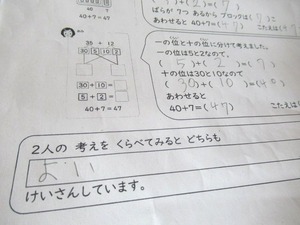 40
7
40+7=47
35 + 12
30 5 10 2
30 + 10 =
5 + 2 =
40 + 7 = 47
)+( 2 )=( 7 )
ばらが 7つ あるから ブロックは(
あわせると 40+7=(
こたえは(
一の位と十の位に分けて考えました。
一の位は5と2なので、
( 5 )+( 2 )=( 7 )
十の位は30と10なので
(30)+(10)=(40)
あわせると
40+7=(47)
こたえは(
2人の 考えを くらべてみると どちらも
よい
けいさんしています。